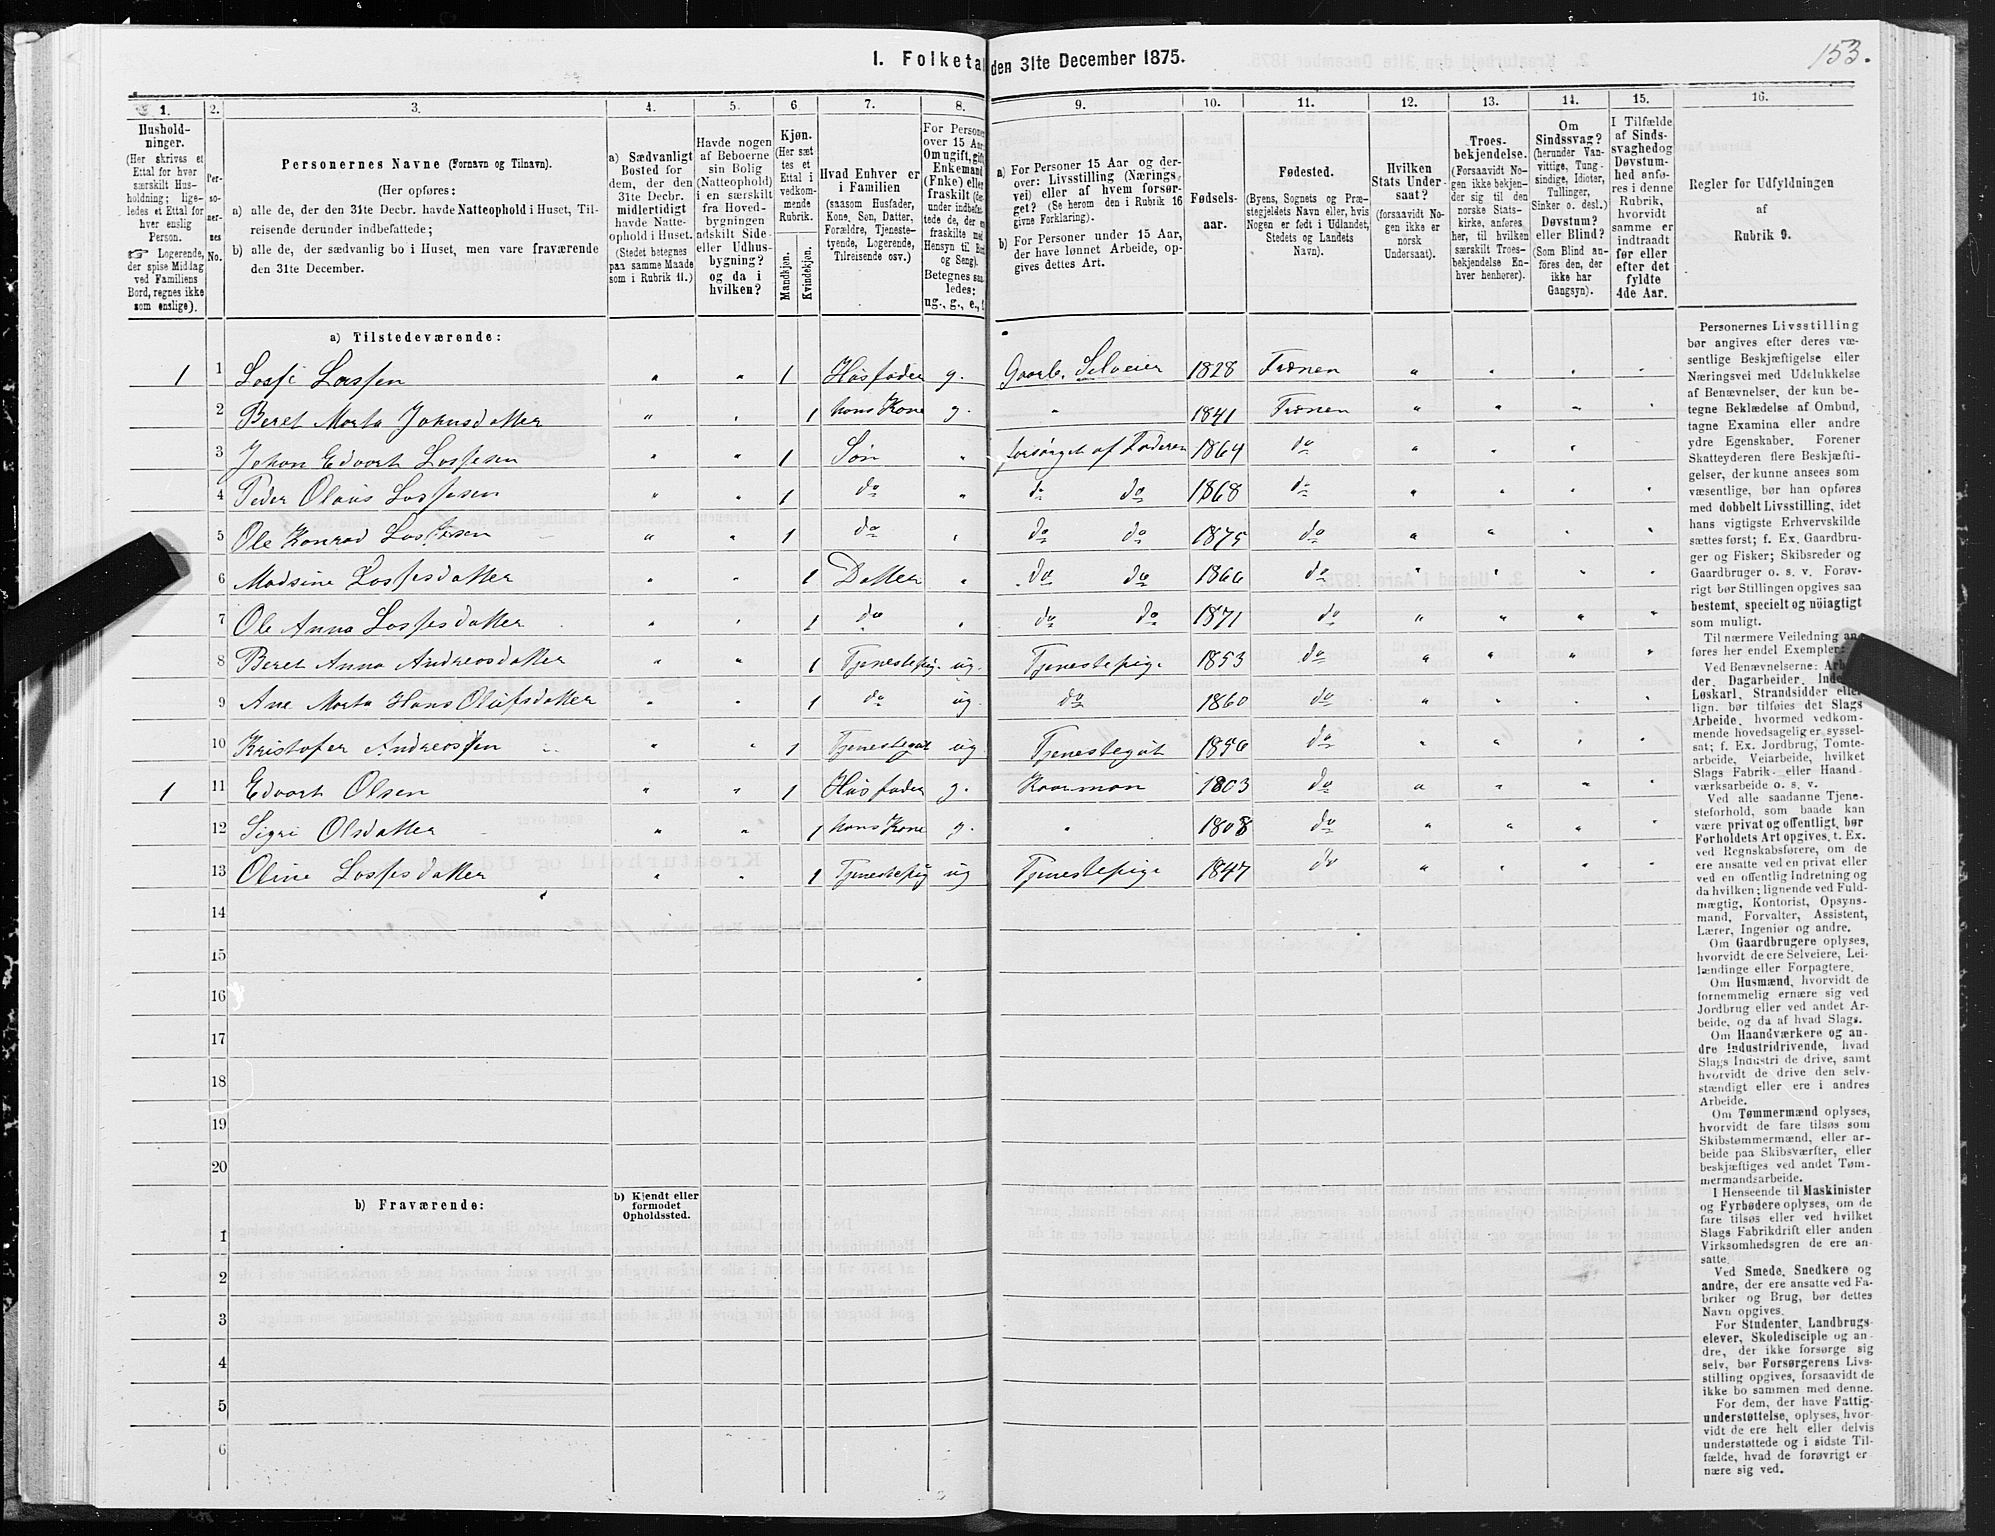 I. Folketal den 31te December 1875.
153.
1. 2. 3. 4. 5. 6. 7. 8. 9. 10. 11. 12. 13. 14. 15. 16.
Hushold-
ninger.
(Her skrives et
Ettal for hver
særskilt Hus-
holdning; lige-
ledes et Ettal for
hver enslig
Person.
☞ Logerende,
der spise Middag
ved Familiens
Bord, regnes ikke
som enslige).
Per-
so-
ner-
nes
No.
Personernes Navne (Fornavn og Tilnavn).
(Her opføres:
a) alle de, der den 31te Decbr. havde Natteophold i Huset, Til-
reisende derunder indbefattede;
b) alle de, der sædvanlig bo i Huset, men vare fraværende
den 31te December.
a) Sædvanligt
Bosted for
dem, der den
31te Decbr.
midlertidigt
havde Natte-
ophold i Huset.
(Stedet betegnes
paa samme Maade
som i Rubrik 11.)
Havde nogen
af Beboerne
sin Bolig
(Natteophold)
i en særskilt
fra Hoved-
bygningen
adskilt Side-
eller Udhus-
bygning?
og da i
hvilken?
Kjøn.
(Her sæt-
tes et
Ettal i
vedkom-
mende
Rubrik.
Mandkjøn.
Kvindekjøn.
Hvad Enhver er
i Familien
(saasom Husfader,
Kone, Søn, Datter,
Forældre, Tjeneste-
tyende, Logerende,
Tilreisende osv.)
For Personer
over 15 Aar:
Om ugift, gift,
Enkemand
(Enke) eller
fraskilt
Betegnes saa-
ledes:
ug., g., e., f.
a) For Personer 15 Aar og der-
over: Livsstilling (Nærings-
vei) eller af hvem forsør-
get? (Se herom den i Rubrik 16
givne Forklaring).
b) For Personer under 15 Aar,
der have lønnet Arbeide, op-
gives dettes Art.
Fødsels-
aar.
Fødested.
(Byens, Sognets og Præ-
stegjeldets Navn eller, hvis
Nogen er født i Udlandet,
Stedets og Landets
Navn).
Hvilken
Stats Under-
saat?
(forsaavidt No-
gen ikke er
norsk
Undersaat).
Troes-
bekjendelse.
(Forsaavidt No-
gen ikke bekjen-
der sig til den
norske Stats-
kirke, anføres
her, til hvilken
særskilt Troes-
bekjendelse En-
hver henhører).
Om
Sindssvag?
(herunder Van-
vittige, Tung-
sindige, Idioter,
Tullinger,
Sinker o. desl.)
Døvstum?
eller Blind?
(Som Blind an-
føres den, der
ikke har
Gangsyn).
I Tilfælde
af Sinds-
svaghed og
Døvstum-
hed anfø-
res i denne
Rubrik,
hvorvidt
samme er
indtraadt
før eller
efter det
fyldte
4de Aar.
Regler for Udfyldningen
af
Rubrik 9.
a) Tilstedeværende:
1 1 Losse Lassen " " 1 Husfader g. Gaardb. Selveier 1828 Trænen " " " "
2 Beret Marta Johnsdatter " " 1 hans Kone g. " 1841 Trænen " " " "
3 Johan Edvart Lossesen " " 1 Søn " forsørget af Faderen 1864 do " " "
4 Peder Olaus Lossesen " " 1 do " do do 1868 do " " " "
5 Ole Konrad Lossesen " " 1 do " do do 1875 do " " " "
6 Madsine Lossesdatter " " 1 Datter " do do 1866 do " " " "
7 Ole Anna Lossesdatter " " 1 do " do do 1871 do " " " "
8 Beret Anna Andreasdatter " " 1 Tjenestepig. ug. Tjenestepige 1853 do " " " "
9 Ane Marta Hans Olufsdatter " " 1 do ug. do 1860 do " " " "
10 Kristofer Andreassen " " 1 Tjenestegut ug. Tjenestegut 1856 do " " " "
1 11 Edvart Olsen " " 1 Husfader g. Kaarman 1803 do " " " "
12 Sigri Olsdatter " " 1 hans Kone g. " 1808 do " " " "
13 Oline Lossesdatter " " 1 Tjenestepig ug Tjenestepige 1847 do " " " "
14
15
16
17
18
19
20
b) Fraværende:
b) Kjendt eller
formodet
Opholdssted.
1
2
3
4
5
6
Personernes Livsstilling
bør angives efter deres væ-
sentlige Beskjæftigelse eller
Næringsvei med Udelukkelse
af Benævnelser, der kun be-
tegne Beklædelse af Ombud,
tagne Examina eller andre
ydre Egenskaber. Forener
Skatteyderen flere Beskjæfti-
gelser, der kunne ansees som
væsentlige, bør han opføres
med dobbelt Livsstilling, idet
hans vigtigste Erhvervskilde
sættes først; f. Ex. Gaardbru-
ger og Fisker; Skibsreder og
Gaardbruger o. s. v. Forøv-
rigt bør Stillingen opgives saa
bestemt, specielt og nöiagtigt
som muligt.
Til nærmere Veiledning an-
føres her endel Exempler:
Ved Benævnelserne: Arbei-
der, Dagarbeider, Inder-
Løskarl, Strandsidder eller
lign. bør tilføies det Slags
Arbeide, hvormed vedkom-
mende hovedsagelig er syssel-
sat; f. Ex. Jordbrug, Tomte-
arbeide, Veiarbeide, hvilket
Slags Fabrik- eller Haand-
værksarbeide o. s. v.
Ved alle saadanne Tjene-
steforhold, som baade kan
være privat og offentligt, bør
Forholdets Art opgives, t. Ex.
ved Regnskabsførere, om de
ere ansatte ved en privat eller
ved en offentlig Indretning og
da hvilken; lignende ved Fuld-
mægtig, Kontorist, Opsyns-
mand, Forvalter, Assistent,
Lærer, Ingeniør og andre.
Om Gaardbrugere oplyses,
hvorvidt de ere Selveiere, Lei-
lændinge eller Forpagtere.
Om Husmænd, hvorvidt de
fornemmelig ernære sig ved
Jordbrug eller ved andet Ar-
beide, og da af hvad Slags.
Om Haandværkere og an-
dre Industridrivende, hvad
Slags Industri de drive, samt
hvorvidt de drive den selv-
stændigt eller ere i andres
Arbeide.
Om Tømmermænd oplyses,
hvorvidt de fare tilsøs som
Skibstømmermænd, eller ar-
beide paa Skibsværfter, eller
beskjæftiges ved andet Tøm-
mermandsarbeide.
I Henseende til Maskinister
og Fyrbødere oplyses, om de
fare tilsøs eller ved hvilket
Slags Fabrikdrift eller anden
Virksomhedsgren de ere an-
satte.
Ved Smede, Snedkere og
andre, der ere ansatte ved Fa-
briker og Brug, bør dettes
Navn opgives.
For Studenter, Landbrugs-
elever, Skoledisciple og an-
dre, der ikke forsørge sig
selv, bør Forsørgerens Livs-
stilling opgives, forsaavidt de
ikke bo sammen med denne.
For dem, der have Fattig-
understøttelse, oplyses, hvor-
vidt de ere helt eller delvis
understøttede og i sidste Til-
fælde, hvad de forøvrigt er-
nære sig ved.